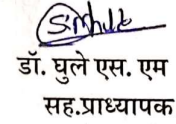 डॉ. घुले एस. एम
सह.प्राध्यापक